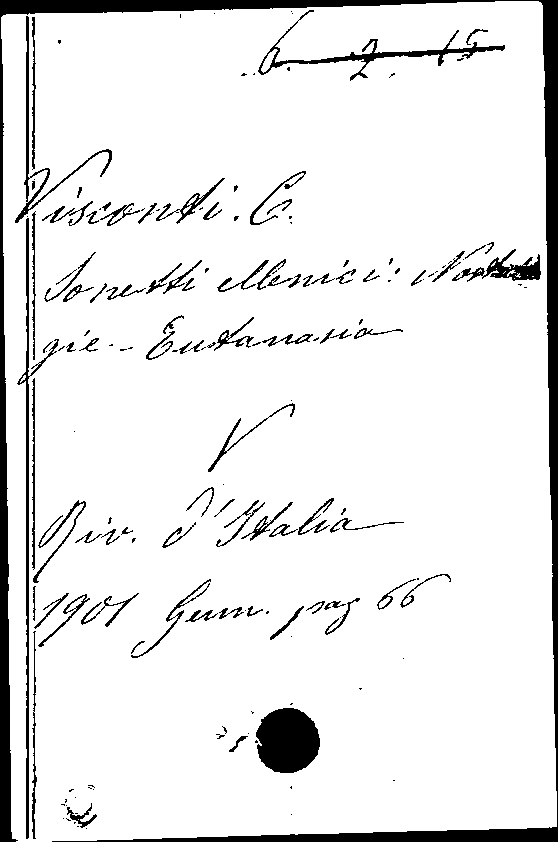 6. 2. 15
Visconti. C.
Sonetti ellenici: Nostal
gie - Eutanasia
V
Riv. d'Italia
1901 Genn. pag 66